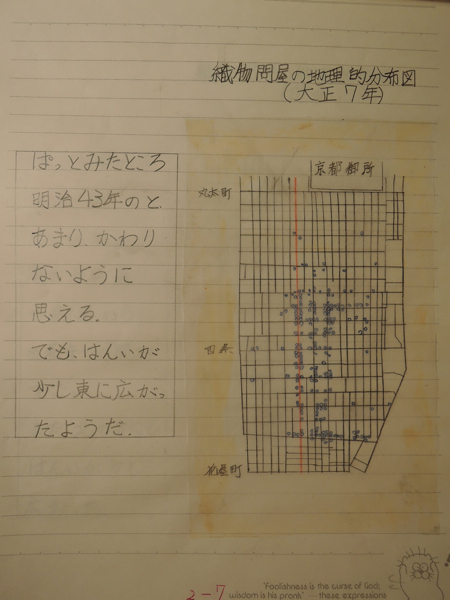 織物問屋の地理的分布図
(大正7年)
京都御所
丸太町
ぱっとみたところ
明治43年のと、
あまり、かわり
ないように
思える。
でも、はんいが
少し東に広がっ
たようだ。
四条
花屋町
2-7
"Foolishness is the curse of God;
wisdom is his prank" — these expressions